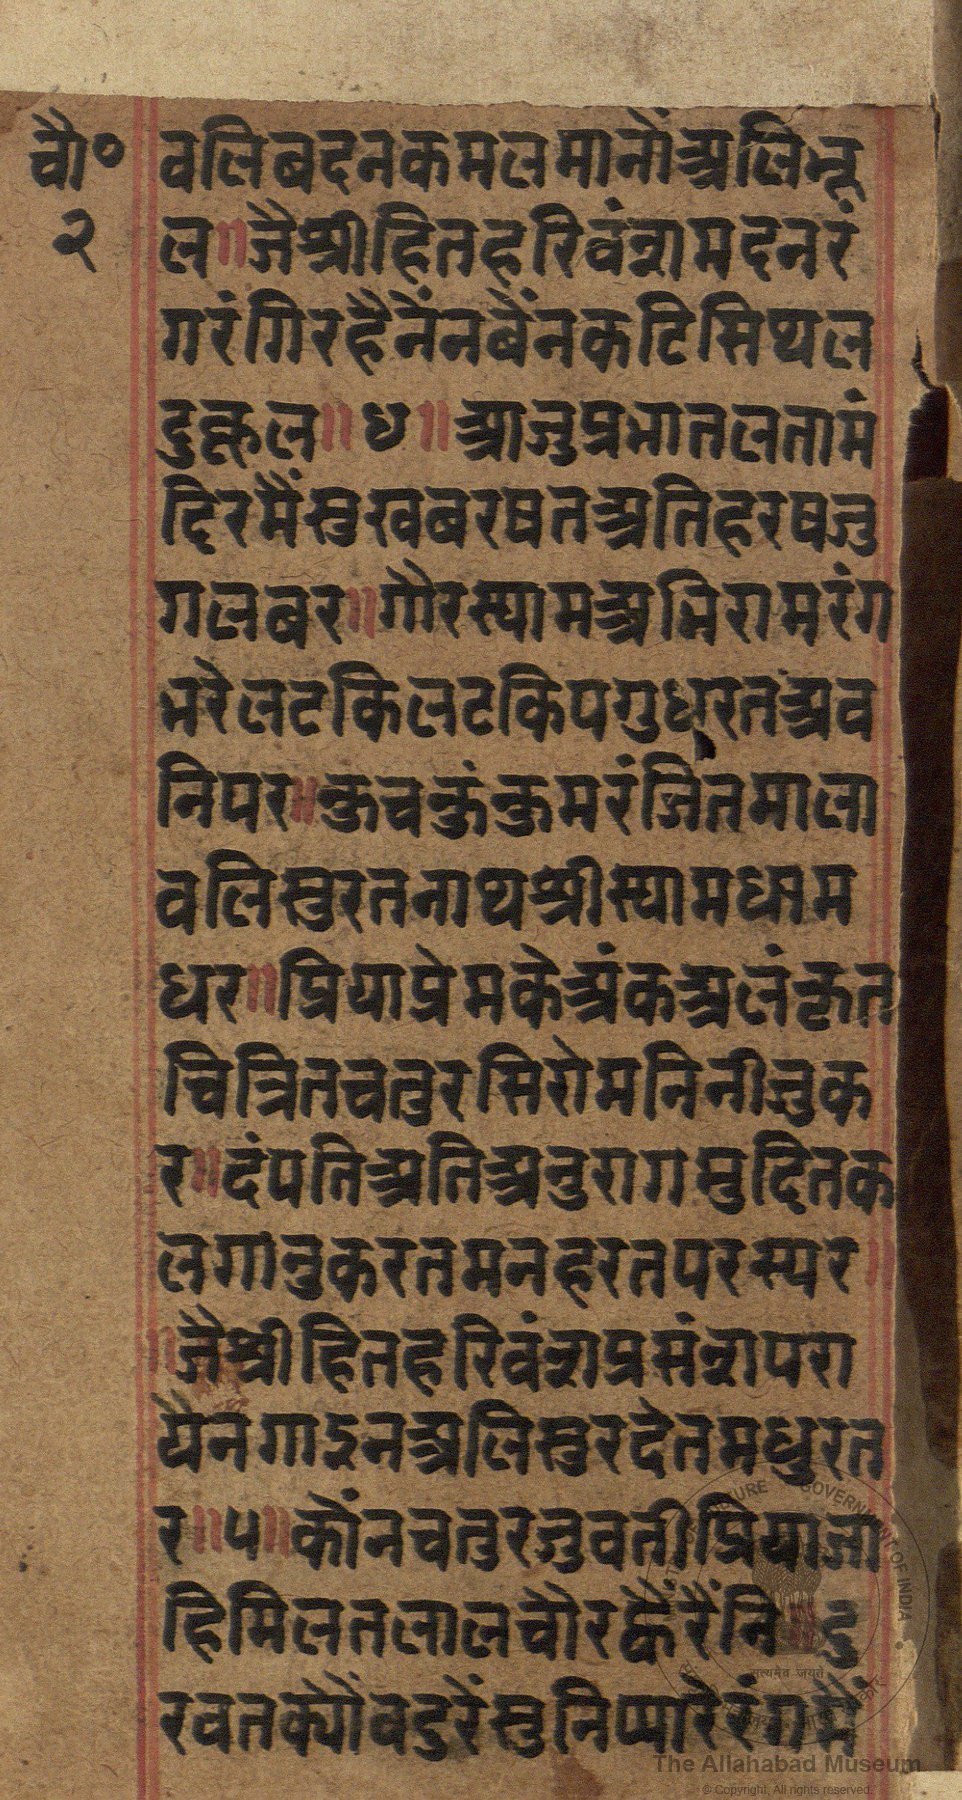 चौ० वलिबदनकमलमानोंअलिभू
२ ल॥जैश्रीहितहरिवंशमदनरं
गरंगिरहैनैंनबैंनकटिसिथल
दुकूल॥४॥आजुप्रभातलतामं
दिरमैंसुखबरषतअतिहरषजु
गलबर॥गौरस्यामअभिरामरंग
भरेलटकिलटकिपगुधरतअव
निपर॥कुचकुंकुमरंजितमाला
वलिसुरतनाथश्रीस्यामधाम
धर॥प्रियाप्रेमकेअंकअलंकृत
चित्रितचतुरसिरोमनिनीजुक
र॥दंपतिअतिअनुरागमुदितक
लगानुकरतमनहरतपरस्पर
॥जैश्रीहितहरिवंशप्रसंशपरा
यैनगाइनअलिसुरदेतमधुरत
र॥५॥कौंनचतुरजुवतीप्रियाजा
हिमिलतलालचौरह्वैरैंनि॥दु
रवतक्योंवदुरैंसुनिप्यारेरंगमैं
सत्यमेव जयते
The Allahabad Museum
© Copyright, All rights reserved.